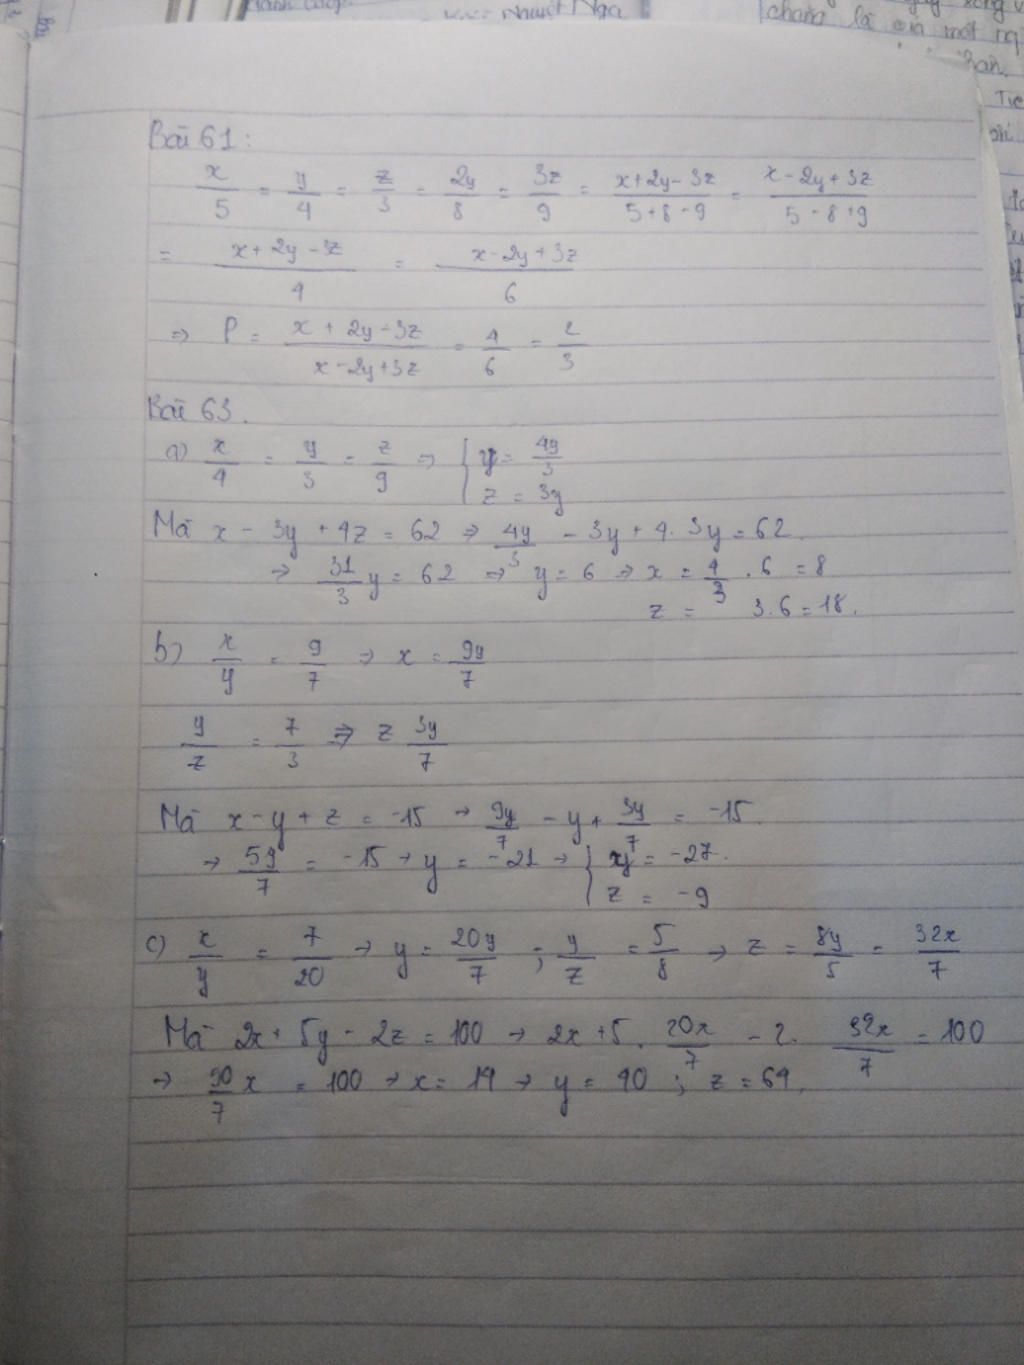 Hạnh
Nguyệt Nga
chẳng là của một ng
Bài 61 :
x/5 = y/4 = z/3 = 2y/8 = 3z/9 = (x+2y-3z)/(5+8-9) = (x-2y+3z)/(5-8+9)
= (x+2y-3z)/4 = (x-2y+3z)/6
⇒ P = (x+2y-3z)/(x-2y+3z) = 4/6 = 2/3
Bài 63.
a) x/4 = y/3 = z/9 ⇒ { y = 4y/3
z = 3y
Mà x - 3y + 4z = 62 ⇒ 4y/3 - 3y + 4. 3y = 62.
→ 31/3 y = 62 ⇒ y = 6 → x = 4/3 . 6 = 8
z = 3.6 = 18.
b) x/y = 9/7 ⇒ x = 9y/7
y/z = 7/3 ⇒ z 3y/7
Mà x - y + z = -15 → 9y/7 - y + 3y/7 = -15.
→ 5y/7 = -15 → y = -21 → { x = -27.
z = -9
c) x/y = 7/20 → y = 20y/7 ; y/z = 5/8 → z = 8y/5 = 32x/7
Mà 2x + 5y - 2z = 100 → 2x + 5. 20x/7 - 2. 32x/7 = 100
→ 50/7 x = 100 → x = 14 → y = 40 ; z = 64.